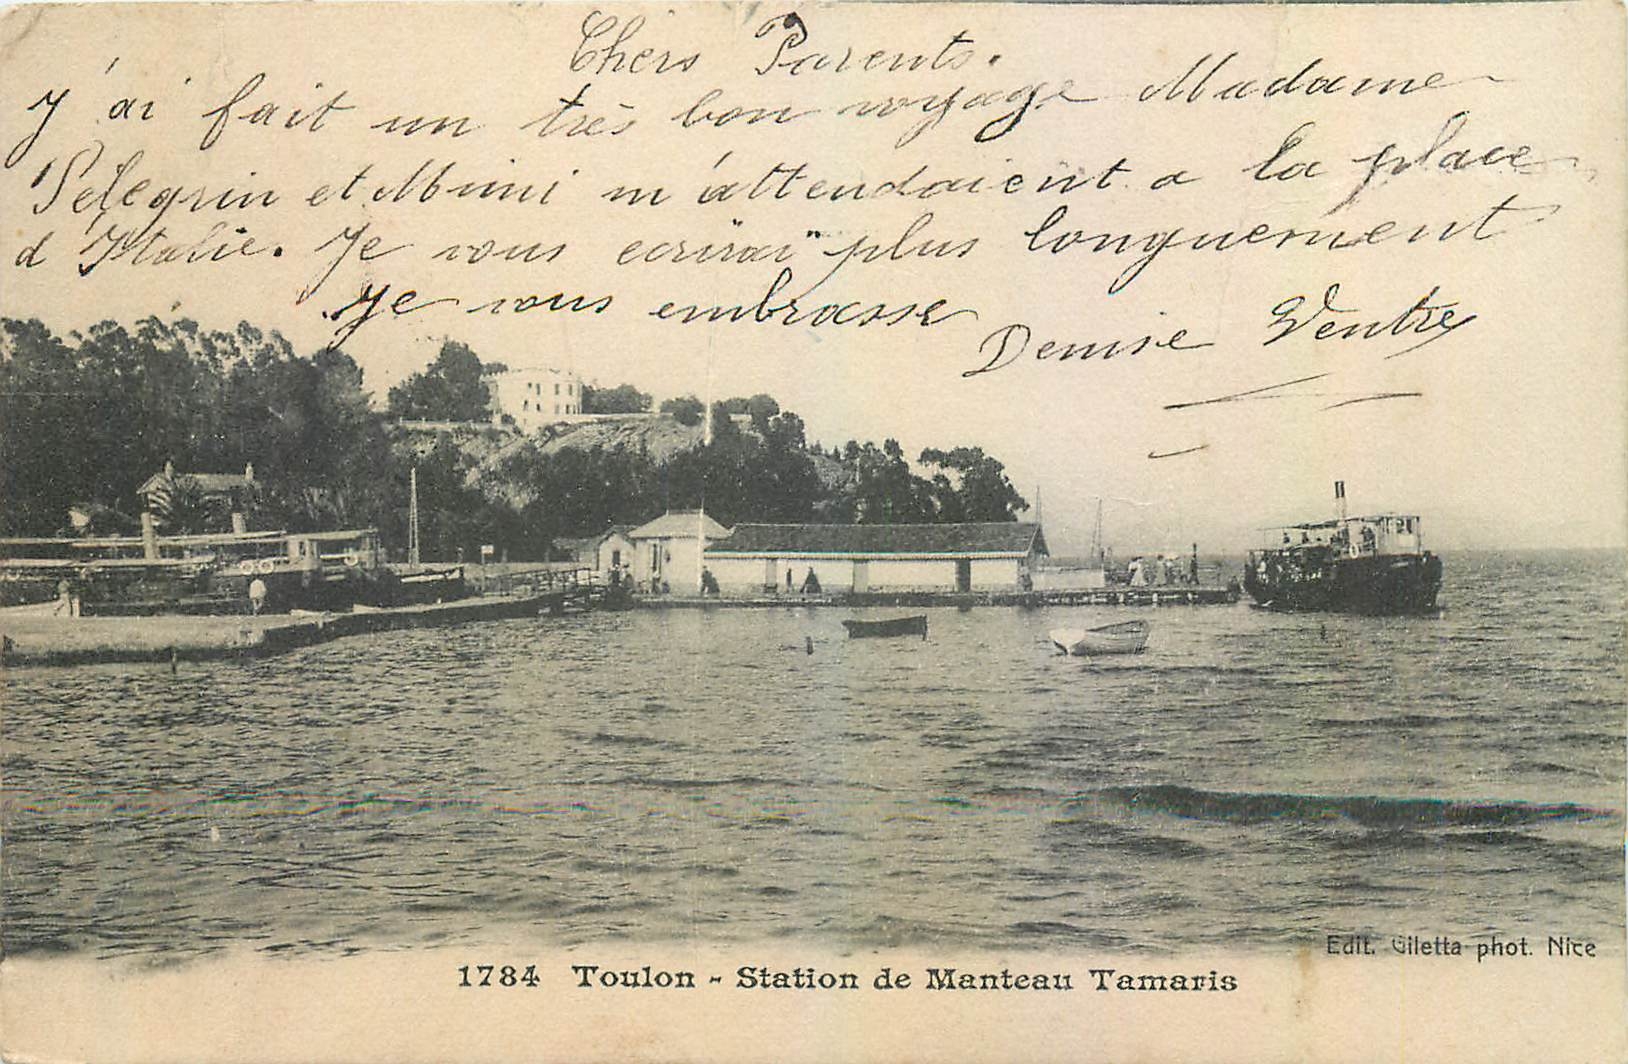 Chers Parents.
J'ai fait un très bon voyage Madame
Pelegrin et Mimi m'attendaient a la place
d'Italie. Je vous ecrirai plus longuement
Je vous embrasse
Denise Ventre
Edit. Giletta phot. Nice
1784 Toulon - Station de Manteau Tamaris